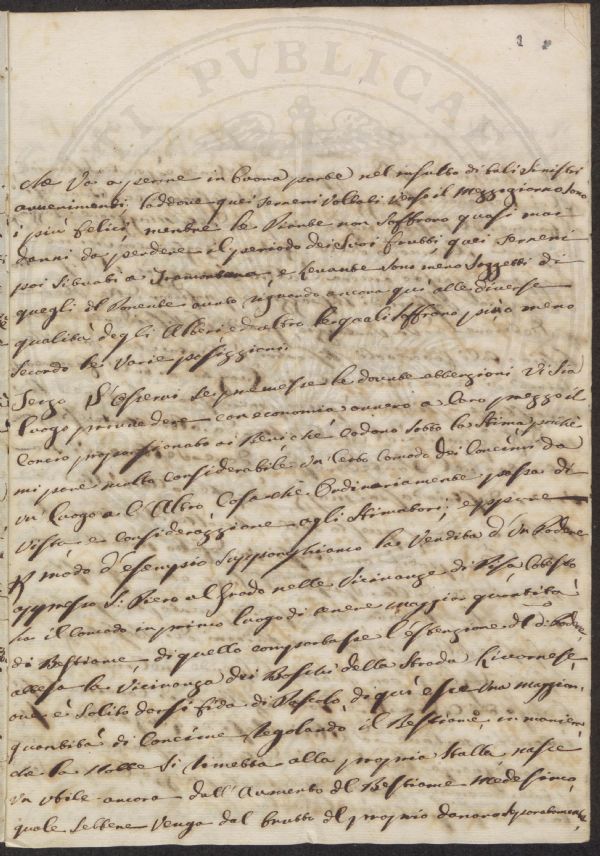 1
che Va a perire in buona parte nel insulto di tali sinistri
avvenimenti, laddove quei Terreni voltati verso il Mezzogiorno sono
i più felici, mentre le Piante non soffrano quasi mai
danni da perdere il periodo dei suoi frutti, quei Terreni
poi situati a Tramontana, e Levante sono meno soggetti di
quegli di Ponente avuto riguardo ancora quì alle diverse
qualità degli Alberi ed altro le quali soffrano più o meno
secondo le Varie posizzioni.
Terzo D'Osservi se premesse le dovute attenzioni Vi sia
luogo provvedere con economia ovvero a Caro prezzo il
Concio proporzionato ai Beni che Cadano sotto la stima perche
mi pare molto considerabile Un Certo Comodo dei Concimi da
Un luogo a l'Altro, Cosa che Ordinariamente passa di
Vista e Considerazzione agli Stimatori, e pure
P modo d'esempio supponghiamo la Vendita d'Un Podere
appresso S. Piero al Grado nelle Vicinanze di Pisa Cotesto
ha il Comodo in primo luogo di tenere maggior quantità
di Bestiame, di quello comportasse l'estenzione del d. Podere,
attesa la Vicinanza dei Boschi della Strada Livornese,
ove è Solito darsi fida di Pascolo, di qui esce Una maggior
quantità di Concime Regolando il Bestiame in maniera
che la Notte si rimetta alla propria Stalla, nasce
Un Utile ancora dall'Aumento del Bestiame Medesimo,
quale sebbene Venga dal frutto del proprio danaro Separatamente,